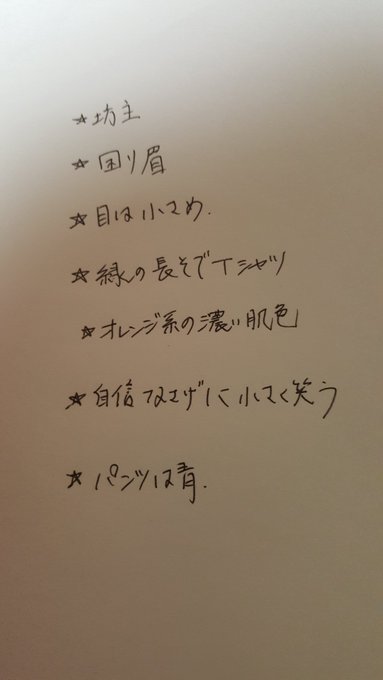 ☆坊主
☆困り眉
☆目は小さめ.
☆緑の長そでTシャツ
☆オレンジ系の濃い肌色
☆自信なさげに小さく笑う
☆パンツは青.